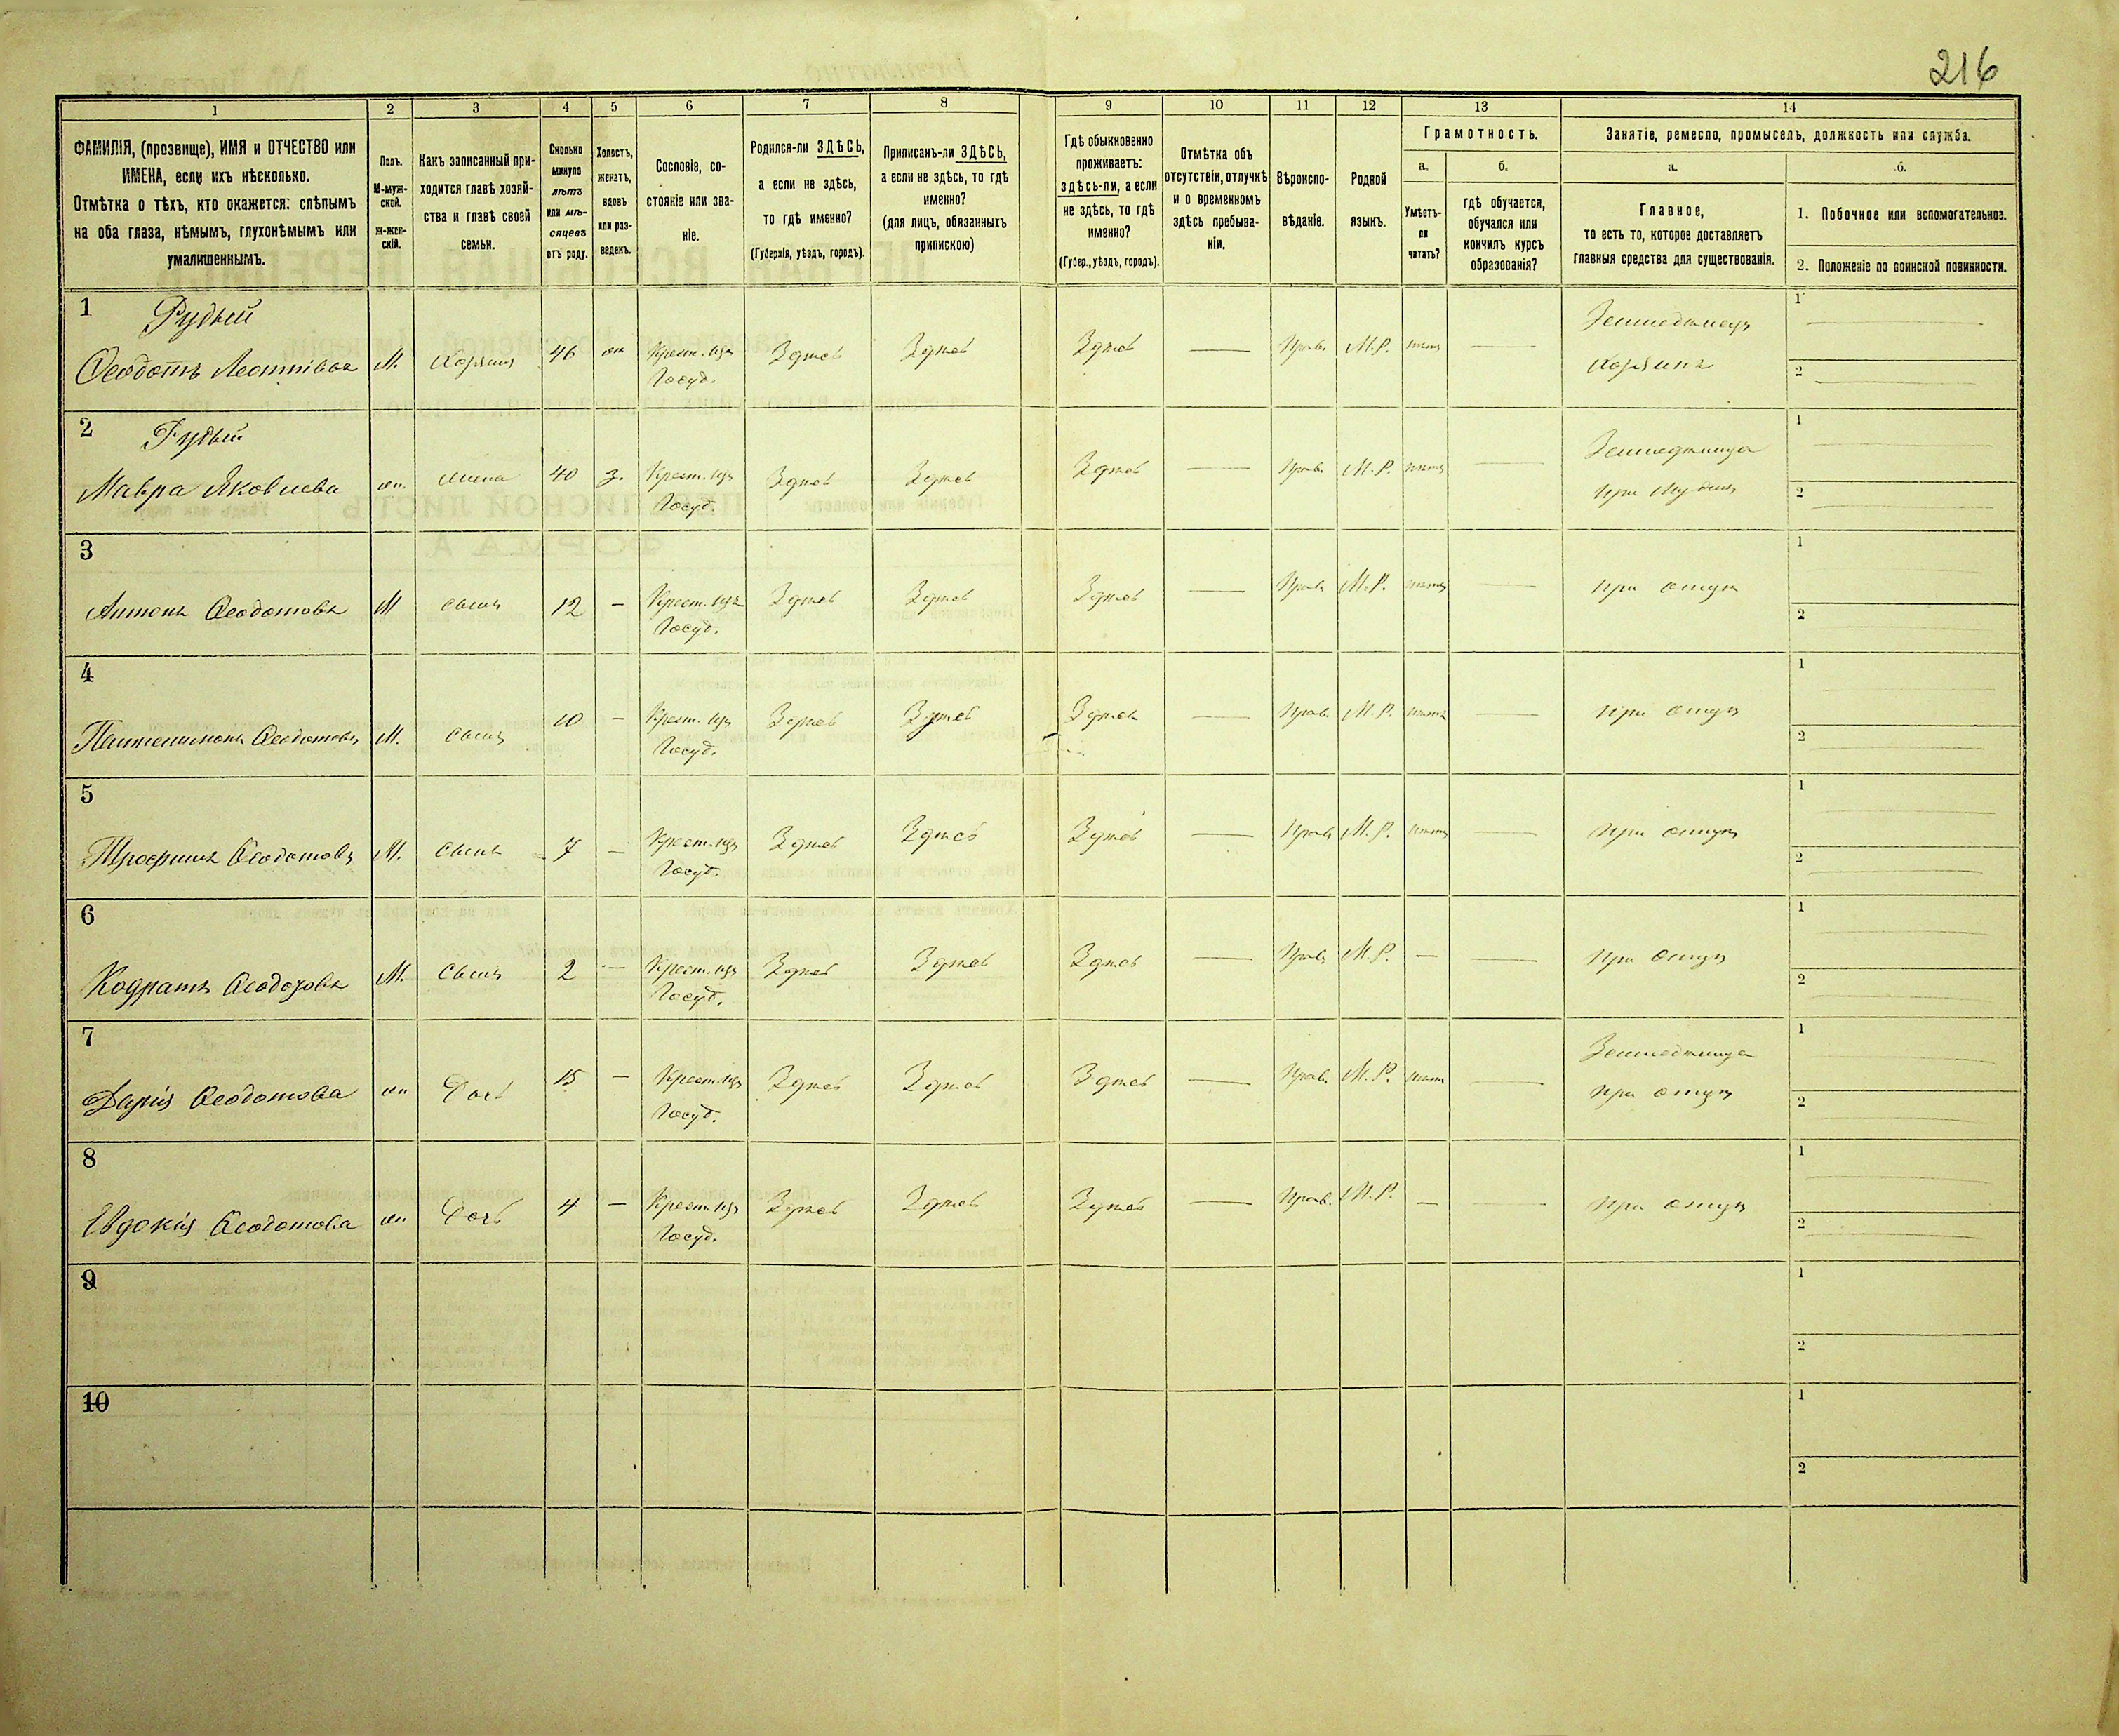 216
1 2 3 4 5 6 7 8 9 10 11 12 13 14
ФАМИЛІЯ, (прозвище), ИМЯ и ОТЧЕСТВО или
ИМЕНА, если ихъ нѣсколько.
Отмѣтка о тѣхъ, кто окажется: слѣпымъ
на оба глаза, нѣмымъ, глухонѣмымъ или
умалишеннымъ.
Полъ.
М-муж-
ской.
ж-жен-
скій.
Какъ записанный при-
ходится главѣ хозяй-
ства и главѣ своей
семьи.
Сколько
минуло
лѣтъ
или мѣ-
сяцевъ
отъ роду.
Холостъ,
женатъ,
вдовъ
или раз-
веденъ.
Сословіе, со-
стояніе или зва-
ніе.
Родился-ли ЗДѢСЬ,
а если не здѣсь,
то гдѣ именно?
(Губернія, уѣздъ, городъ).
Приписанъ-ли ЗДѢСЬ,
а если не здѣсь, то гдѣ
именно?
(для лицъ, обязанныхъ
припискою)
Гдѣ обыкновенно
проживаетъ:
здѣсь-ли, а если
не здѣсь, то гдѣ
именно?
(Губер., уѣздъ, городъ).
Отмѣтка объ
отсутствіи, отлучкѣ
и о временномъ
здѣсь пребыва-
ніи.
Вѣроиспо-
вѣданіе.
Родной
языкъ.
Грамотность.
а.
Умѣетъ-
ли
читать?
б.
гдѣ обучается,
обучался или
кончилъ курсъ
образованія?
Занятіе, ремесло, промыселъ, должность или служба.
а.
Главное,
то есть то, которое доставляетъ
главныя средства для существованія.
б.
1. Побочное или вспомогательное.
2. Положеніе по воинской повинности.
1 Рудый Земледѣлецъ 1
Ѳеодотъ Леонтіевъ М. Хозяинъ 46 жн Крест. изъ Здѣсь Здѣсь Здѣсь — Прав. М.Р. нѣтъ — Хозяинъ 2
Госуд.
2 Рудый Земледѣлица 1
Мавра Яковлева жн. жена 40 з. Крест. изъ Здѣсь Здѣсь Здѣсь — Прав. М.Р. нѣтъ — при мужѣ 2
Госуд.
3 1
Антонъ Ѳеодотовъ М сынъ 12 — Крест. изъ Здѣсь Здѣсь Здѣсь — Прав. М.Р. нѣтъ — при отцѣ 2
Госуд.
4 1
Пантелимонъ Ѳеодотовъ М. сынъ 10 — Крест. изъ Здѣсь Здѣсь Здѣсь — Прав. М.Р. нѣтъ — при отцѣ 2
Госуд.
5 1
Трофимъ Ѳеодотовъ М. сынъ 7 — Крест. изъ Здѣсь Здѣсь Здѣсь — Прав. М.Р. нѣтъ — при отцѣ 2
Госуд.
6 1
Кодратъ Ѳеодотовъ М. сынъ 2 — Крест. изъ Здѣсь Здѣсь Здѣсь — Прав. М.Р. — — при отцѣ 2
Госуд.
7 Земледѣлица 1
Дарія Ѳеодотова жн Дочь 15 — Крест. изъ Здѣсь Здѣсь Здѣсь — Прав. М.Р. нѣтъ — при отцѣ 2
Госуд.
8 1
Евдокія Ѳеодотова жн Дочь 4 — Крест. изъ Здѣсь Здѣсь Здѣсь — Прав. М.Р. — — при отцѣ 2
Госуд.
9 1
2
10 1
2